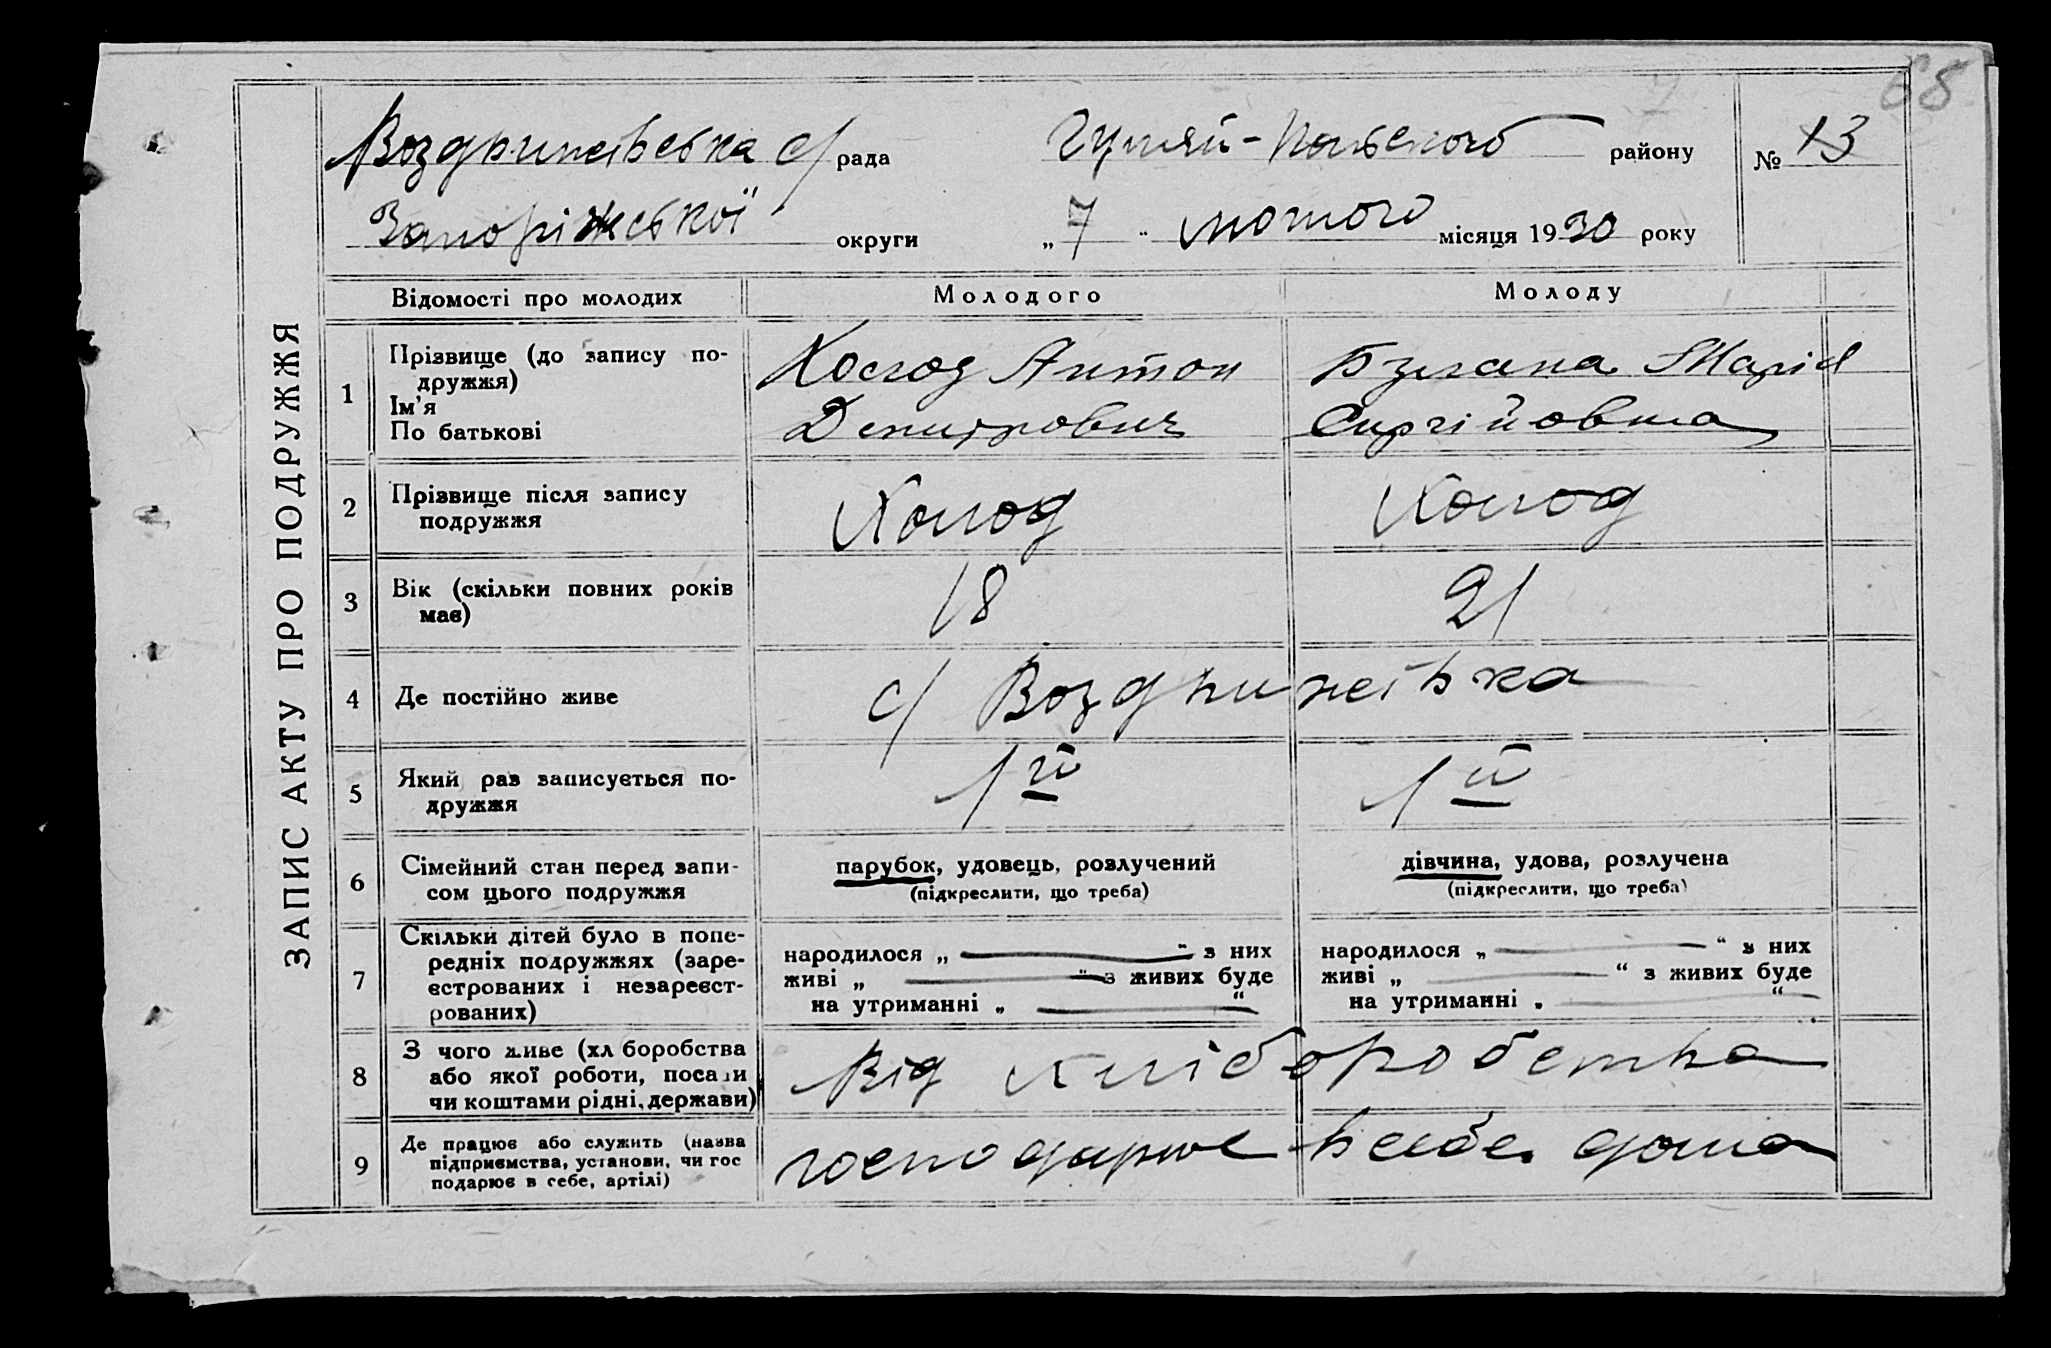 68
ЗАПИС АКТУ ПРО ПОДРУЖЖЯ
Воздвижевська с/рада Гуляй-Польского району № 13
Запоріжської округи „7“ лютого місяця 1930 року
Відомості про молодих Молодого Молоду
1 Прізвище (до запису по-
дружжя)
Ім'я
По батькові
Холод Антон
Демидович
Марія
Сиргійовна
2 Прізвище після запису
подружжя
Холод Холод
3 Вік (скільки повних років
має)
18 21
4 Де постійно живе с/ Воздвижевка
5 Який раз записується по-
дружжя
1й 1й
6 Сімейний стан перед запи-
сом цього подружжя
парубок, удовець, розлучений
(підкреслити, що треба)
дівчина, удова, розлучена
(підкреслити, що треба)
7 Скільки дітей було в попе-
редніх подружжях (заре-
єстрованих і незареєст-
рованих)
народилося „ “ з них
живі „ “ з живих буде
на утриманні „ “
народилося „ “ з них
живі „ “ з живих буде
на утриманні „ “
8 З чого живе (хл боробства
або якої роботи, посади
чи коштами рідні, держави)
Від хліборобства
9 Де працює або служить (назва
підприємства, установи, чи гос
подарює в себе, артілі)
господарює в себе дома